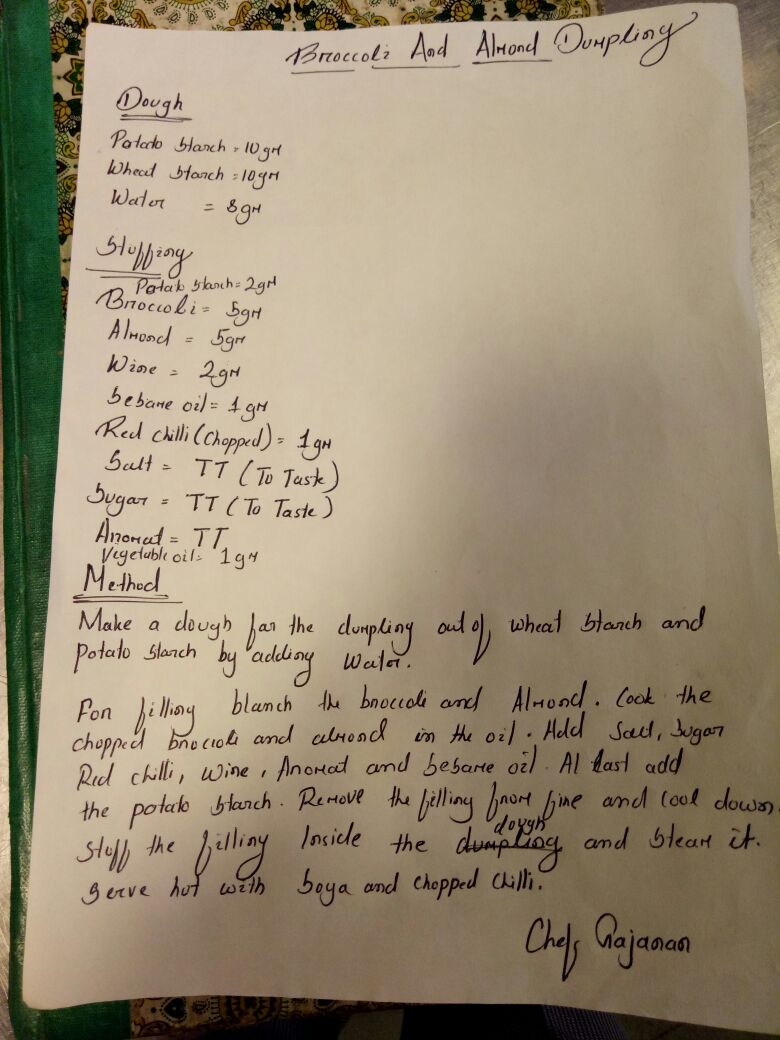 Broccoli And Almond Dumpling
Dough
Potato starch = 10gm
Wheat starch = 10gm
Water = 8gm
Stuffing
Potato starch = 2gm
Broccoli = 5gm
Almond = 5gm
Wine = 2gm
Sesame oil = 1gm
Red chilli (chopped) = 1gm
Salt = TT (To Taste)
Sugar = TT (To Taste)
Aromat = TT
Vegetable oil = 1gm
Method
Make a dough for the dumpling out of wheat starch and
potato starch by adding Water.
For filling blanch the broccoli and Almond. Cook the
chopped broccoli and almond in the oil. Add Salt, Sugar
Red chilli, Wine, Aromat and Sesame oil. At last add
the potato starch. Remove the filling from fire and cool down.
dough
Stuff the filling Inside the dumpling and steam it.
Serve hot with Soya and chopped chilli.
Chef Gajanan